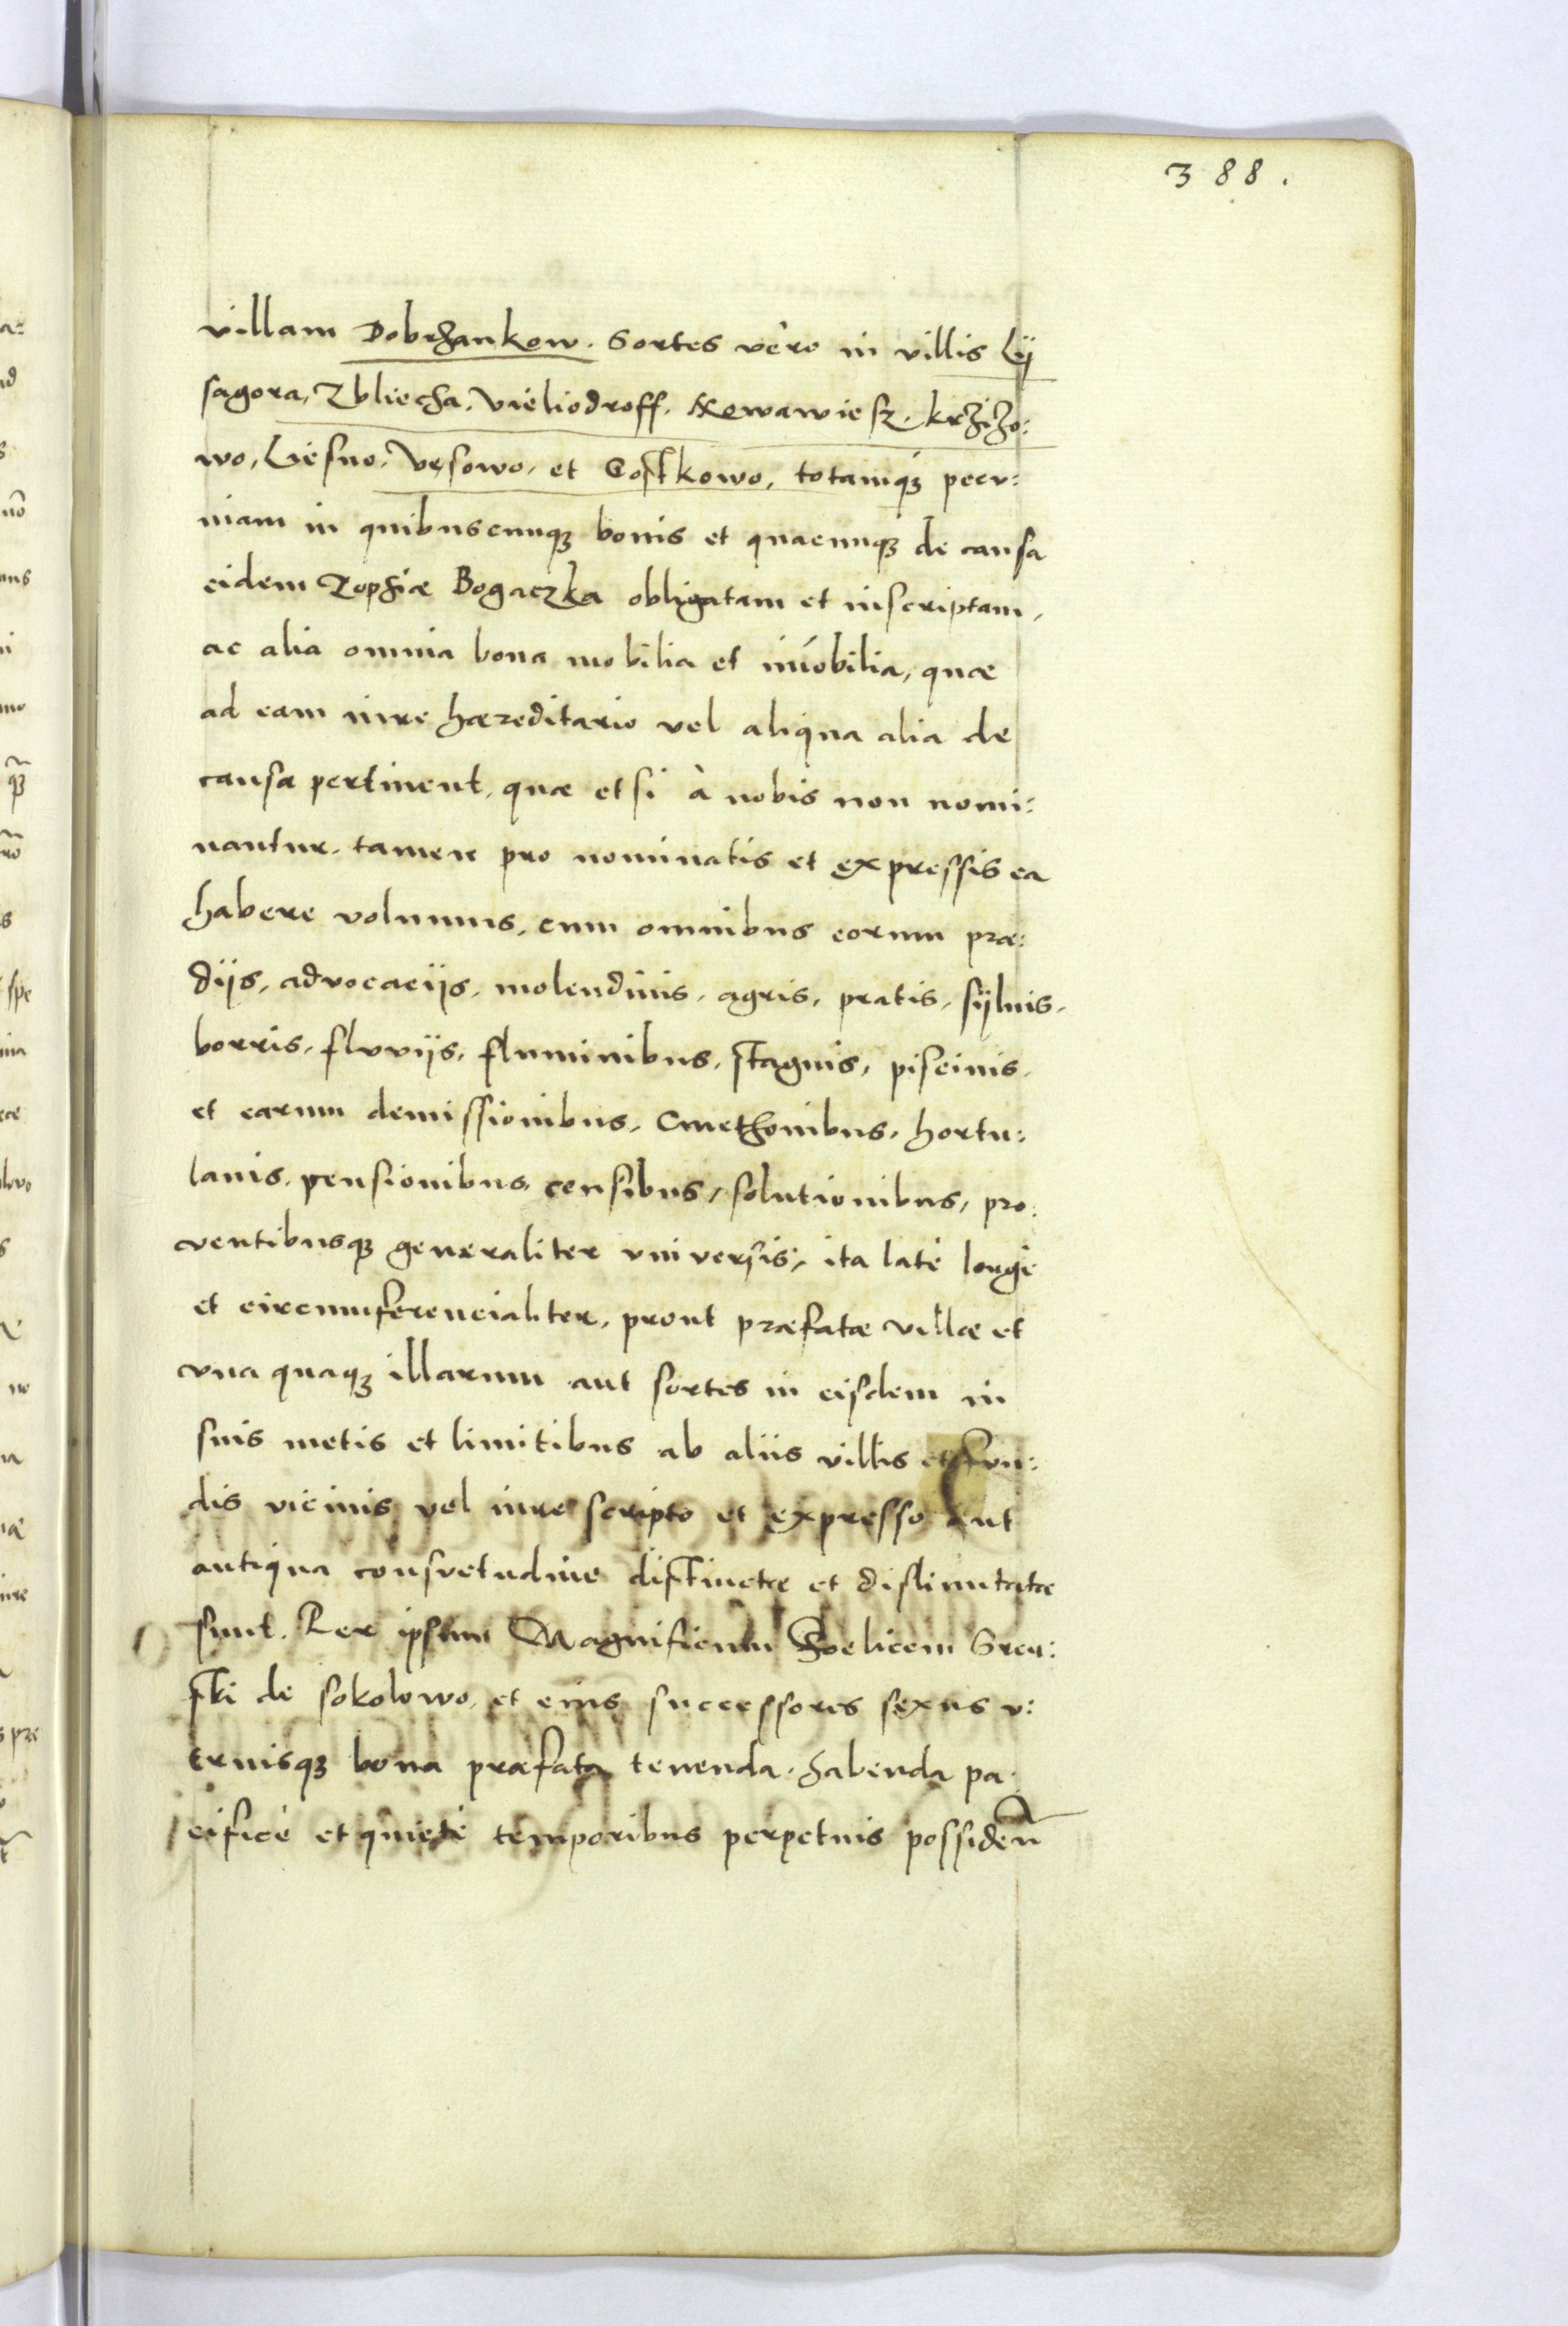 388.
villam Dobrzankow. Sortes vero in villis Lÿ
sagora, Zbliecha. Vieliodroff. Nowawiesz. krziżo:
wo, Liesno, Vęsowo, et Costkowo, totamqȝ pecu:
niam in quibuscunqȝ bonis et quacunqȝ de causa
eidem Zophiæ Bogaczka obligatam et inscriptam,
ac alia omnia bona mobilia et im̄obilia, quæ
ad eam iure hæreditario vel aliqua alia de
causa pertinent, quæ etsi à nobis non nomi:
nantur. tamen pro nominatis et expressis ea
habere volumus, cum omnibus eorum præ:
dijs, advocacijs, molendinis, agris, pratis, sÿluis,
borris, fluvijs, fluminibus, stagnis, piscinis,
et earum demissionibus, Cmethonibus, hortu:
lanis, pensionibus, censibus, solutionibus, pro:
ventibusqȝ generaliter vniversis, ita latè longè
et circumferencialiter, prout præfatæ villæ et
vna quaqȝ illarum aut sortes in eisdem in
suis metis et limitibus ab aliis villis et fun:
dis vicinis vel iure scripto et expresso aut
antiqua consvetudine distinctæ et dislimitatæ
sunt. Per ipsum Magnificum Foelicem Sren:
ski de sokolowo, et eius successores sexus v:
triusqȝ bona præfata tenenda. habenda pa:
cificè et quietè temporibus perpetuis possiden̄